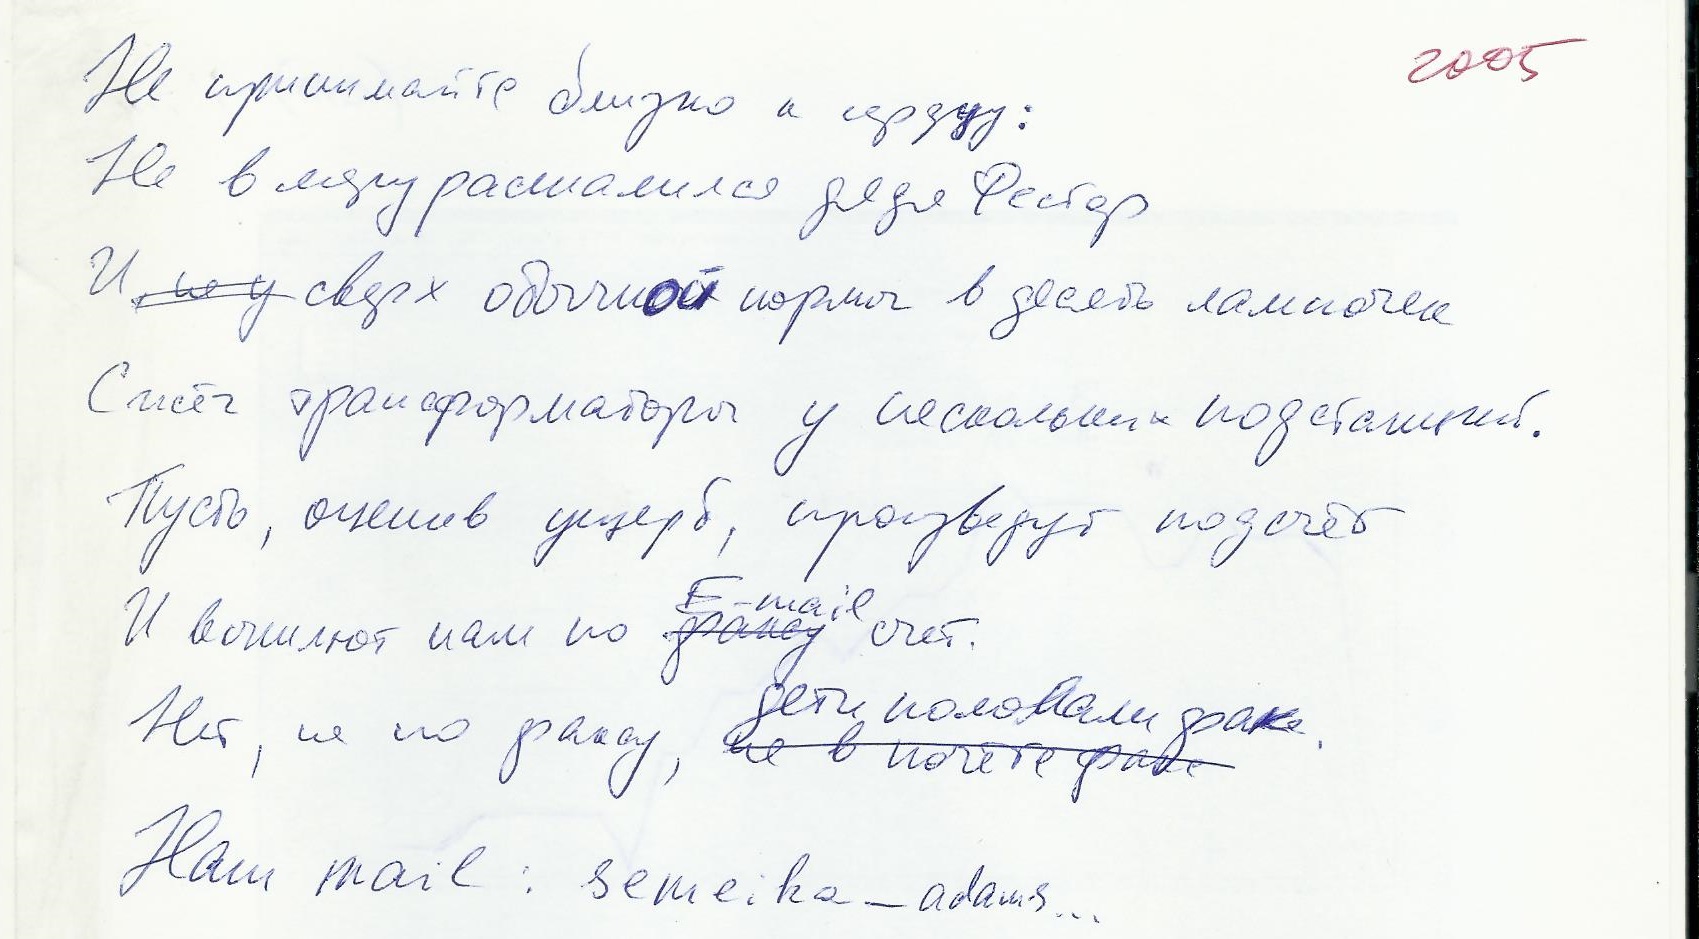 2005
Не принимайте близко к сердцу:
Не в меру расшалился дядя Фестер
И не у сверх обычной нормы в десять лампочек
Сжёг трансформаторы у нескольких подстанций.
Пусть, оценив ущерб, произведут подсчёт
E-mail
И вышлют нам по факсу счет.
дети поломали факс.
Нет, не по факсу, не в почёте факс
Наш mail: semeika_adams...